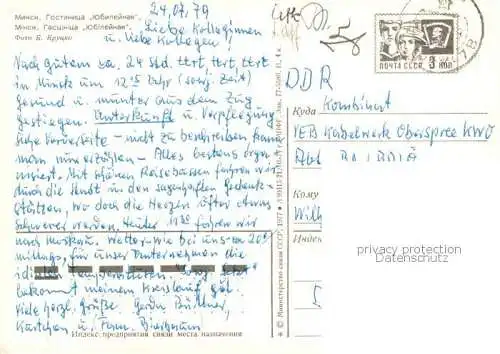 24.07.79
Минск. Гостиница „Юбилейная“
Мінск. Гасцініца „Юбілейная“
Liebe Kolleginnen
u. liebe Kollegen!
Nach gutem ca. 24 Std. ttert, ttert, ttert ist
in Minsk um 12 45 Uhr (sowj. Zeit)
gesund u. munter aus dem Zug
gestiegen. Unterkunft u. Verpflegung
siehe Vorderseite - nicht zu beschreiben kann
man nur erzählen - Alles bestens organ
isiert. Mit schönen Reisebussen fahren wir
durch die Stadt in den sagenhaften Gedenk-
stätten, wo doch die Herzen öfter etwas
schwerer werden. Heute 19 30 fahren wir
nach Moskau. Wetter - wie bei uns - ca 20°
mittags, für unser Unternehmen die
bekommt meinem Kreislauf gut.
Viele herzl. Grüße. Gerda
Kärtchen u. Fam.
Индекс предприятия связи места назначения
© Министерство связи СССР, 1977
ПОЧТА СССР
DDR
Куда Kombinat
VEB Kabelwerk Oberspree KWO
Abt
Кому
Wilh
Индекс
privacy protection
Datenschutz